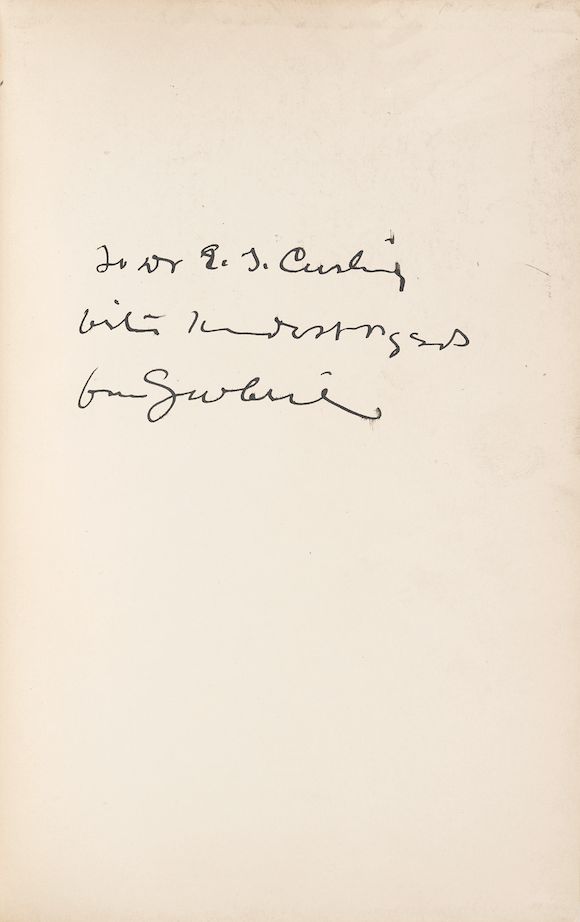 To Dr E. F. Cushing
with kindest regards
from G W Crile